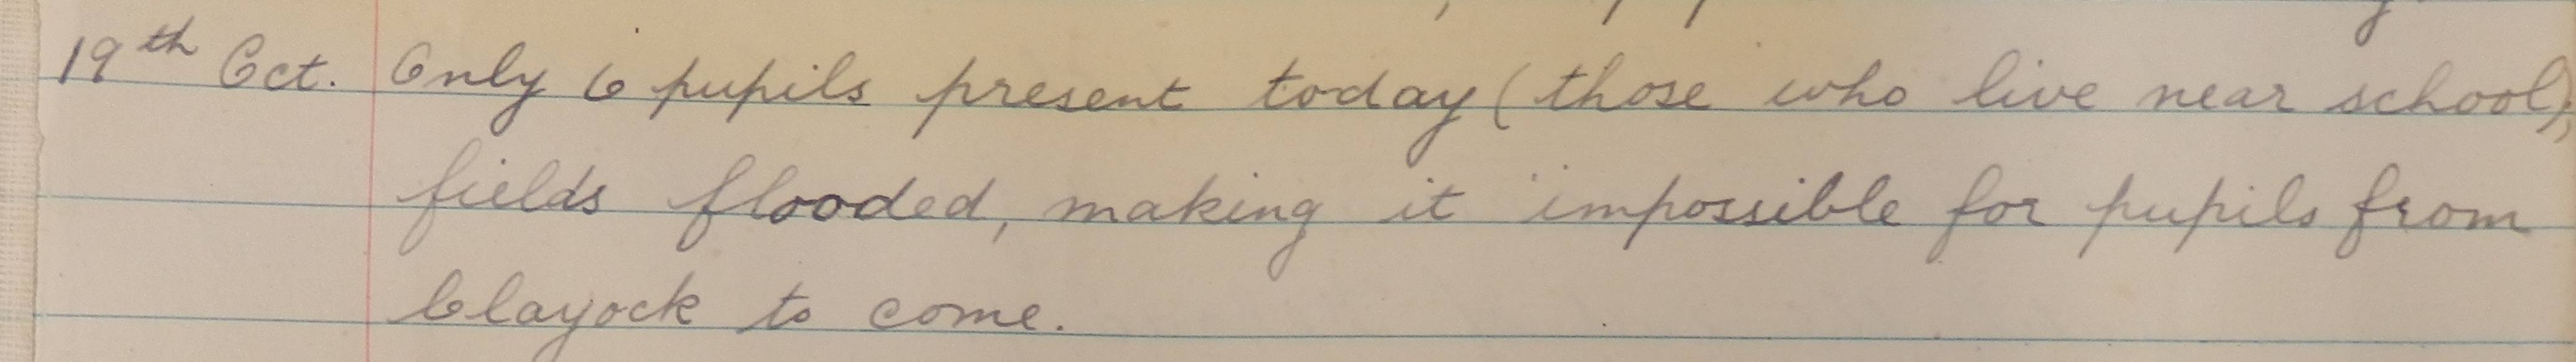 19th Oct. Only 6 pupils present today (those who live near school),
fields flooded, making it impossible for pupils from
Clayock to come.